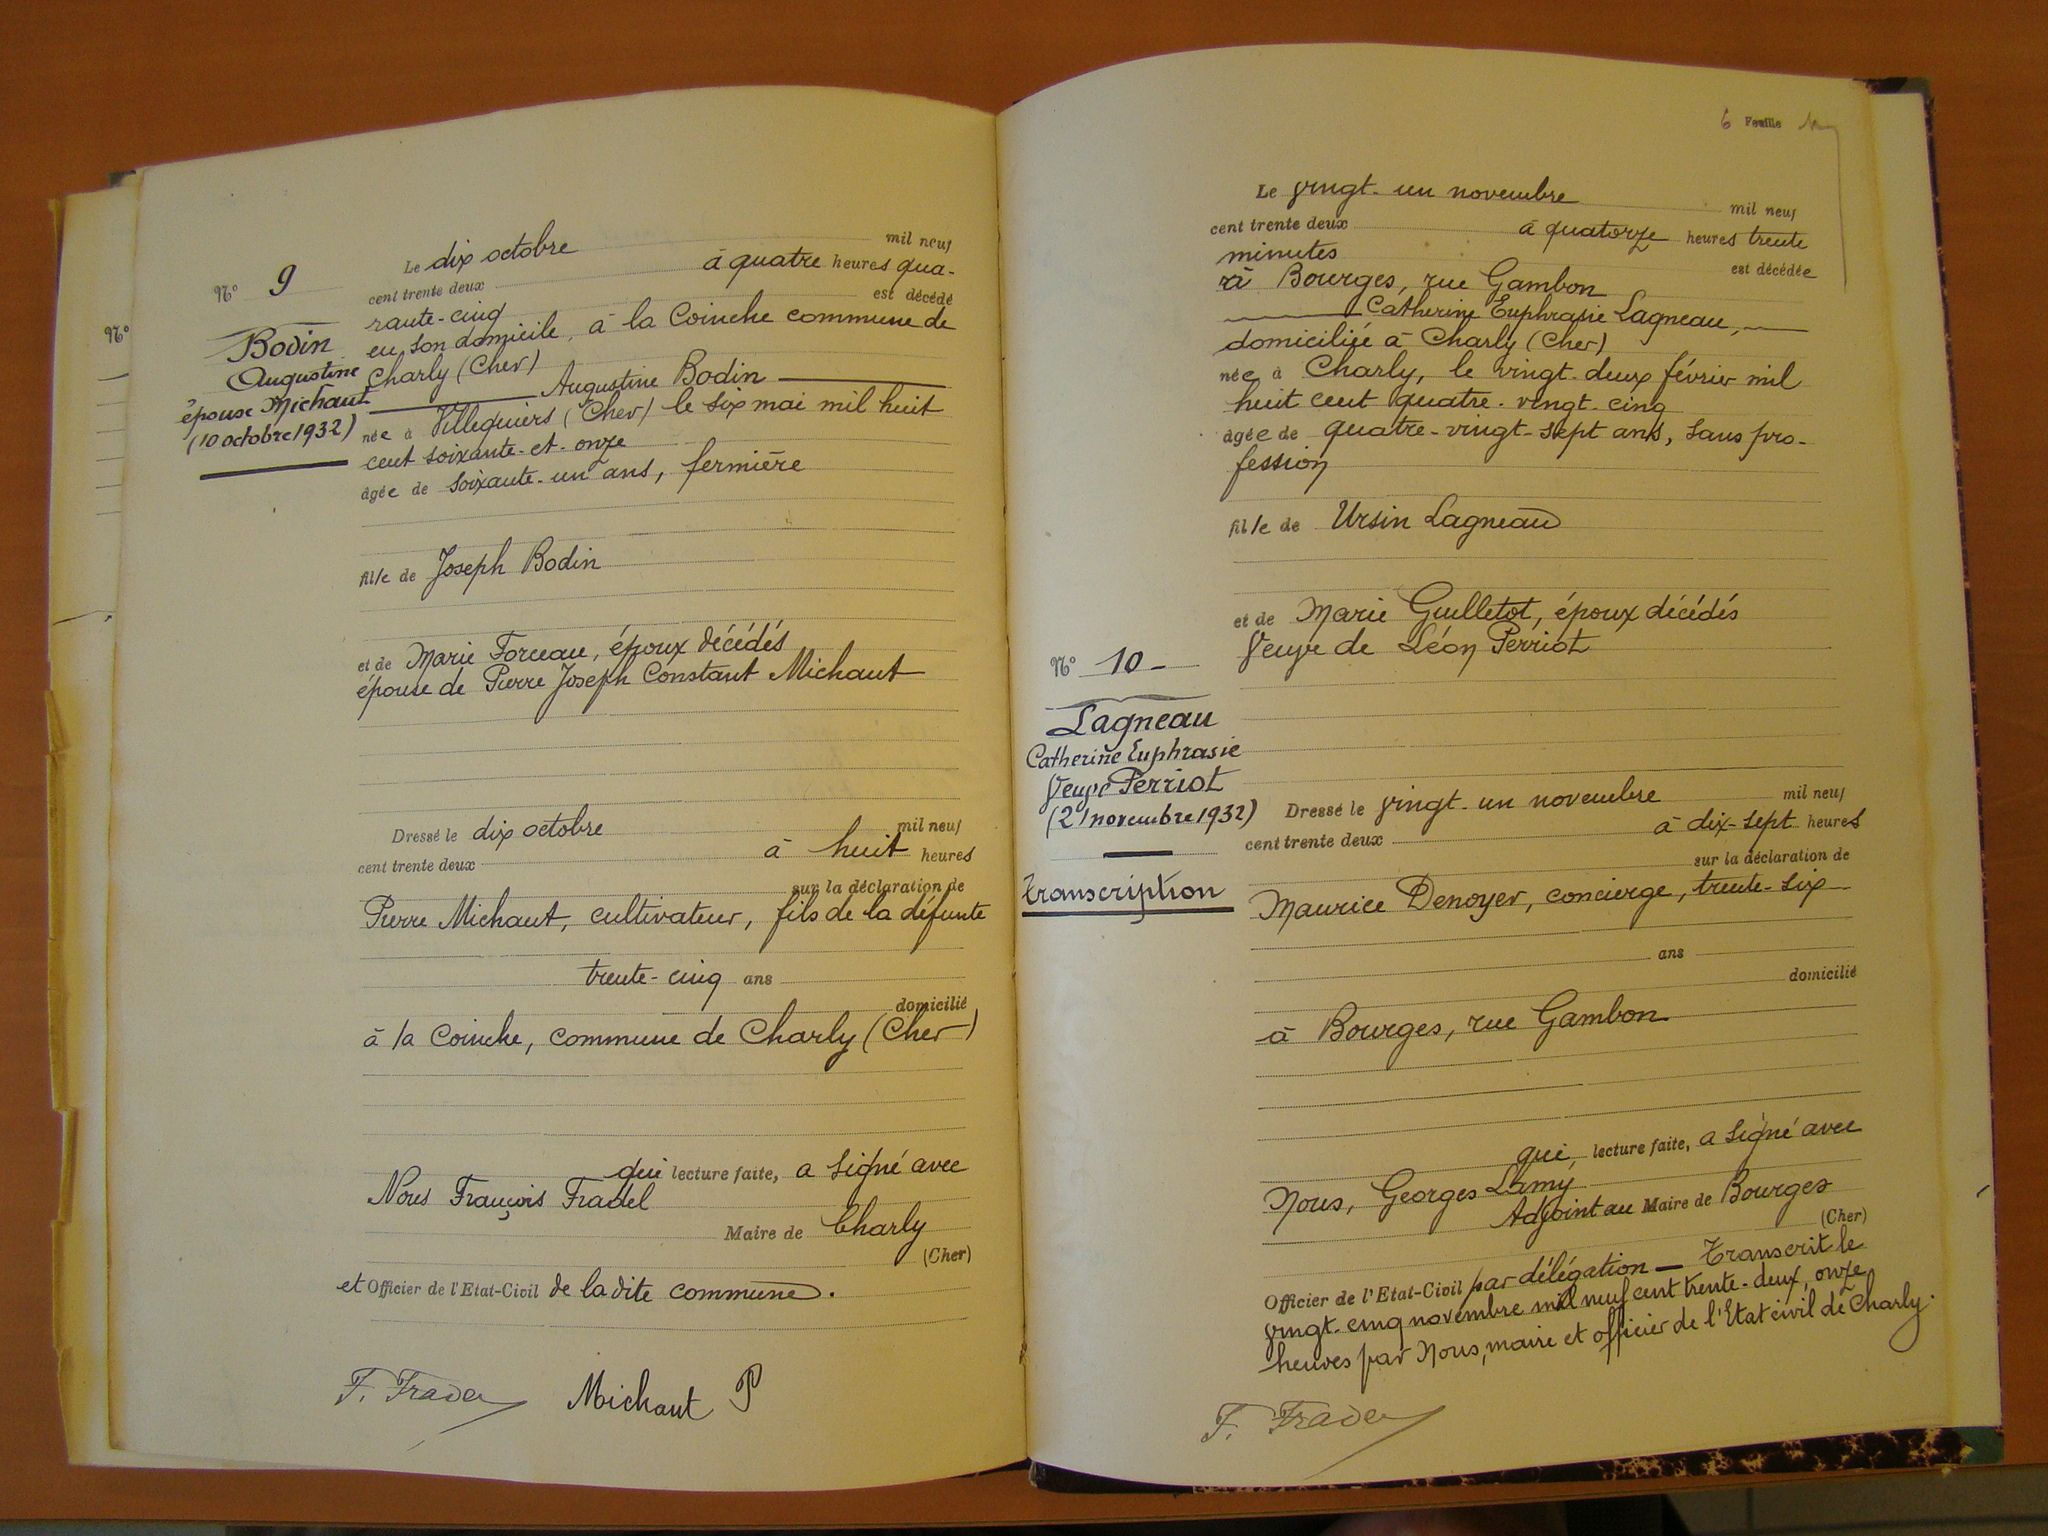 N°
N° 9
Bodin
Augustine
épouse Michaut
(10 octobre 1932)
Le dix octobre mil neuf
cent trente deux à quatre heures qua-
rante-cinq est décédé
en son domicile, à la Coinche commune de
Charly (Cher)
Augustine Bodin
née à Villequiers (Cher) le six mai mil huit
cent soixante-et-onze
âgée de soixante-un ans, fermière
fille de Joseph Bodin
et de Marie Forceau, époux décédés
épouse de Pierre Joseph Constant Michaut
Dressé le dix octobre mil neuf
cent trente deux à huit heures
sur la déclaration de
Pierre Michaut, cultivateur, fils de la défunte
trente-cinq ans
domicilié
à la Coinche, commune de Charly (Cher)
qui lecture faite, a signé avec
Nous François Fradel
Maire de Charly
(Cher)
et Officier de l'Etat-Civil de la dite commune.
F. Fradel Michaut P
6 Feuille
N° 10-
Lagneau
Catherine Euphrasie
Veuve Perriot
(21 novembre 1932)
Transcription
Le vingt-un novembre mil neuf
cent trente deux à quatorze heures trente
minutes est décédée
à Bourges, rue Gambon
Catherine Euphrasie Lagneau,
domiciliée à Charly (Cher)
née à Charly, le vingt-deux février mil
huit cent quatre-vingt-cinq
âgée de quatre-vingt-sept ans, sans pro-
fession
fille de Ursin Lagneau
et de Marie Guilletot, époux décédés
Veuve de Léon Perriot
Dressé le vingt-un novembre mil neuf
cent trente deux à dix-sept heures
sur la déclaration de
Maurice Denoyer, concierge, trente-six
ans
domicilié
à Bourges, rue Gambon
qui, lecture faite, a signé avec
Nous, Georges Lamy
Adjoint au Maire de Bourges
(Cher)
Officier de l'Etat-Civil par délégation — Transcrit le
vingt-cinq novembre mil neuf cent trente-deux, onze
heures par Nous, maire et officier de l'Etat civil de Charly.
F. Fradel